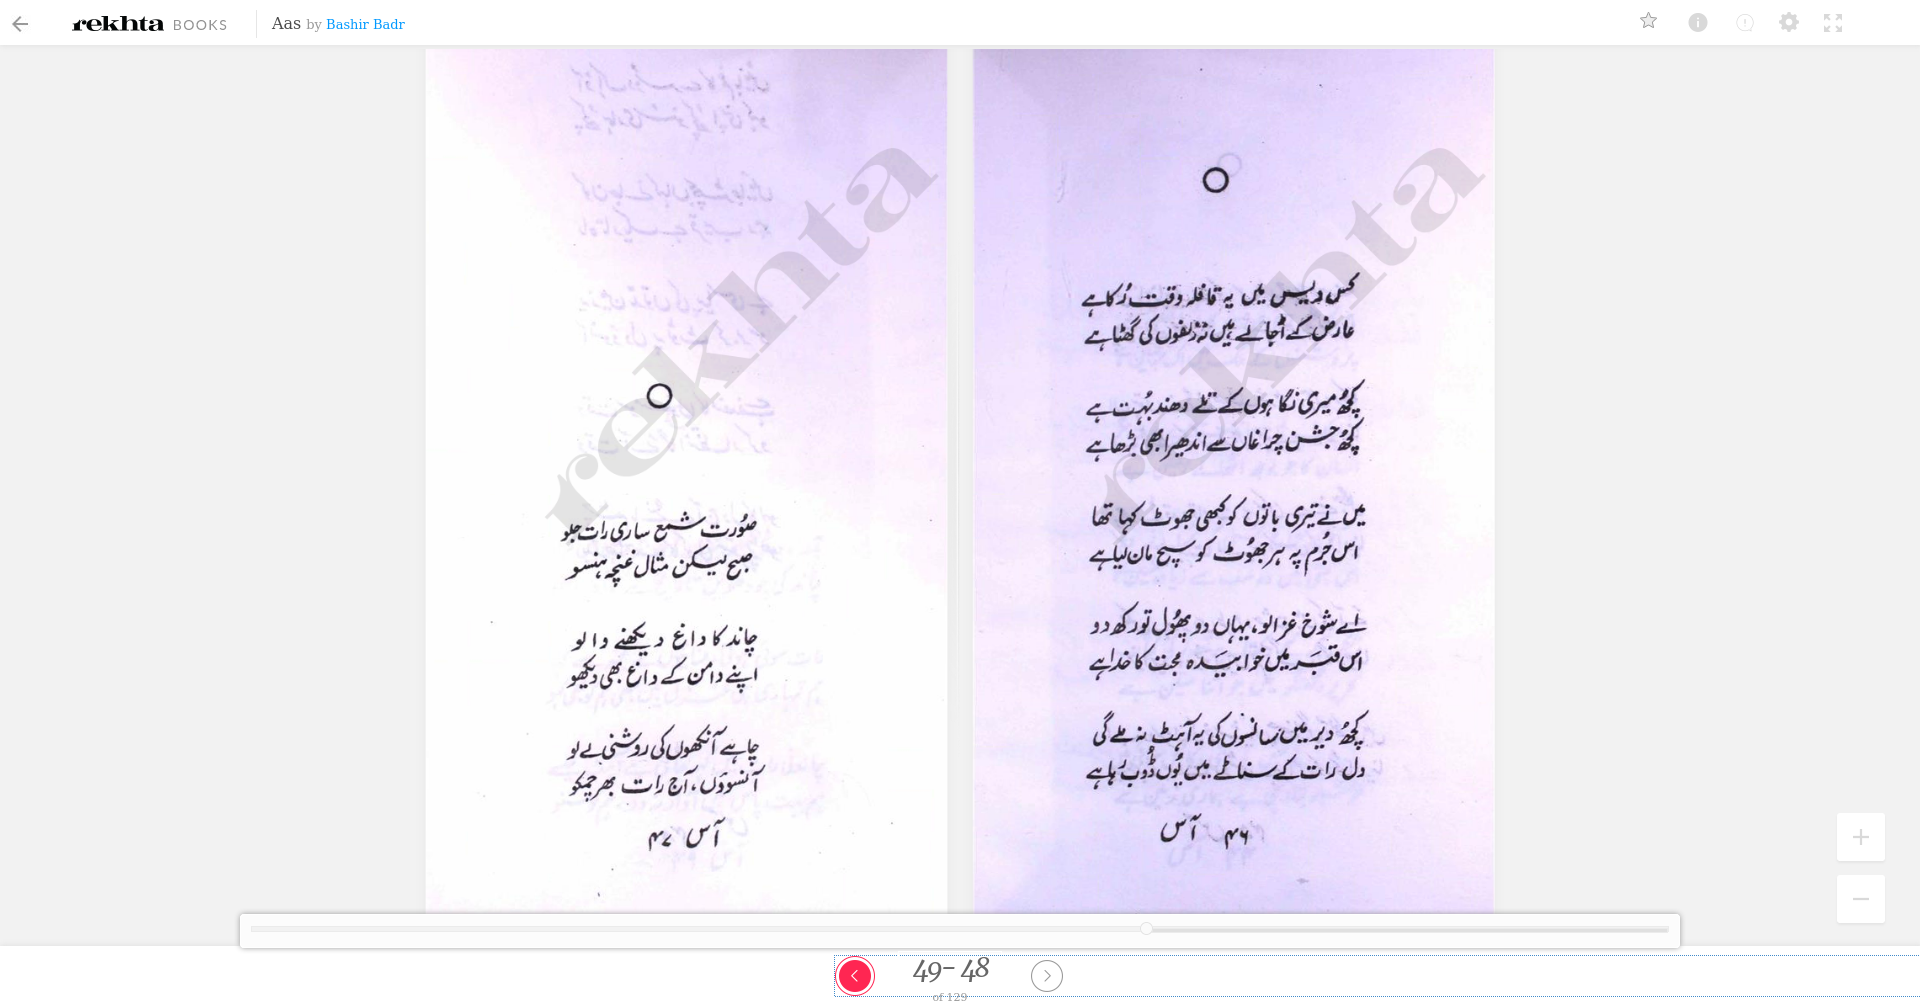 rekhta BOOKS Aas by Bashir Badr
کس دیس میں یہ قافلہ وقت رُکا ہے
عارض کے اُجالے ہیں نہ زلفوں کی گھٹا ہے
کچھ میری نگاہوں کے تلے دھند بہُت ہے
کچھ جشن چراغاں سے اندھیرا بھی بڑھا ہے
میں نے تیری باتوں کو کبھی جھوٹ کہا تھا
اس جُرم پہ ہر جھُوٹ کو سچ مان لیا ہے
اے شوخ غزالو، یہاں دو پھُول تو رکھ دو
اس قبَر میں خوابیَدہ محبت کا خدا ہے
کچھُ دیر میں سانسوں کی یہ آہٹ نہ ملے گی
دل رات کے سناٹے میں یُوں ڈُوب رہا ہے
۴۶ آس
صُورت شمع ساری رات جلو
صبح لیکن مثال غنچہ ہنسو
چاند کا داغ دیکھنے والو
اپنے دامن کے داغ بھی دیکھو
چاہے آنکھوں کی روشنی لے لو
آنسوؤں، آج رات بھر چمکو
آس ۴۷
rekhta
rekhta
49- 48
of 129